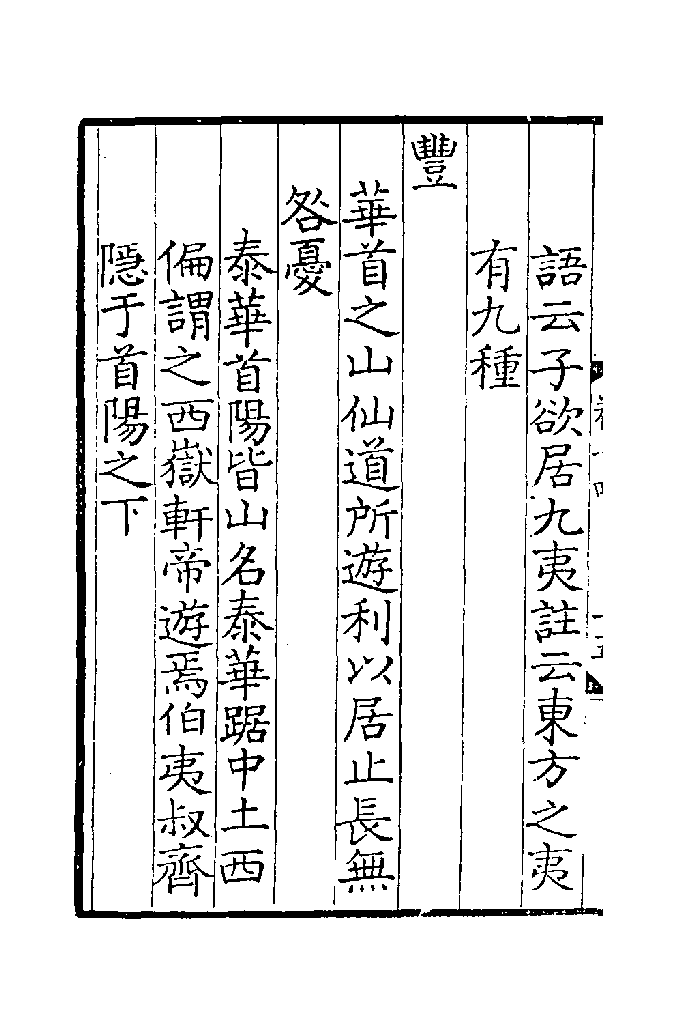 語云子欲居九夷註云東方之夷
有九種
豐
華首之山仙道所遊利以居止長無
咎憂
泰華首陽皆山名泰華踞中土西
偏謂之西嶽軒帝遊焉伯夷叔齊
隱于首陽之下